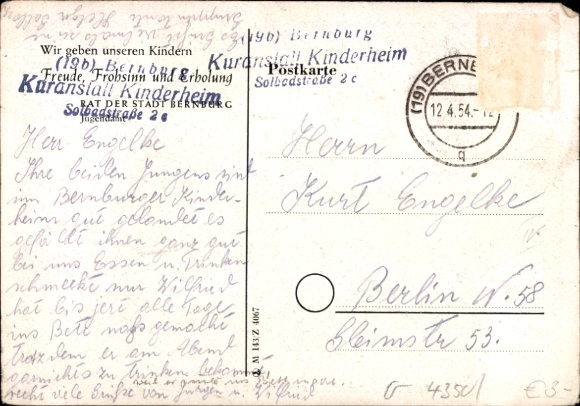 Wir geben unseren Kindern
Freude, Frohsinn und Erholung
RAT DER STADT BERNBURG
Jugendamt
(19b) Bernburg
Kuranstalt Kinderheim
Solbadstraße 2c
(19b) Bernburg
Kuranstalt Kinderheim
Solbadstraße 2c
Postkarte
(19) BERNB
12.4.54.-12
q
Herr Engelke
Ihre beiden Jungens sind
im Bernburger Kinder-
heim gut gelandet es
gefällt ihnen ganz gut
bei uns Essen u. Trinken
schmeckt nur Wilfried
hat bis jezt alle Tage
ins Bett naß gemacht
trozdem er am Abend
garnichts zu trinken bekommt
recht viele Grüße von Jürgen u. Wilfried
M 143/Z 4067
Herrn
Kurt Engelke
Berlin N. 58
Gleimstr 53.
4350/
€3-